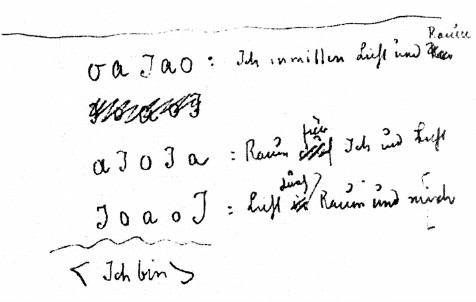 o a J a o : Ich inmitten Luft und Raum
a J o J a : Raum für Ich und Luft
J o a o J : Luft durch Raum und mich
< Ich bin >